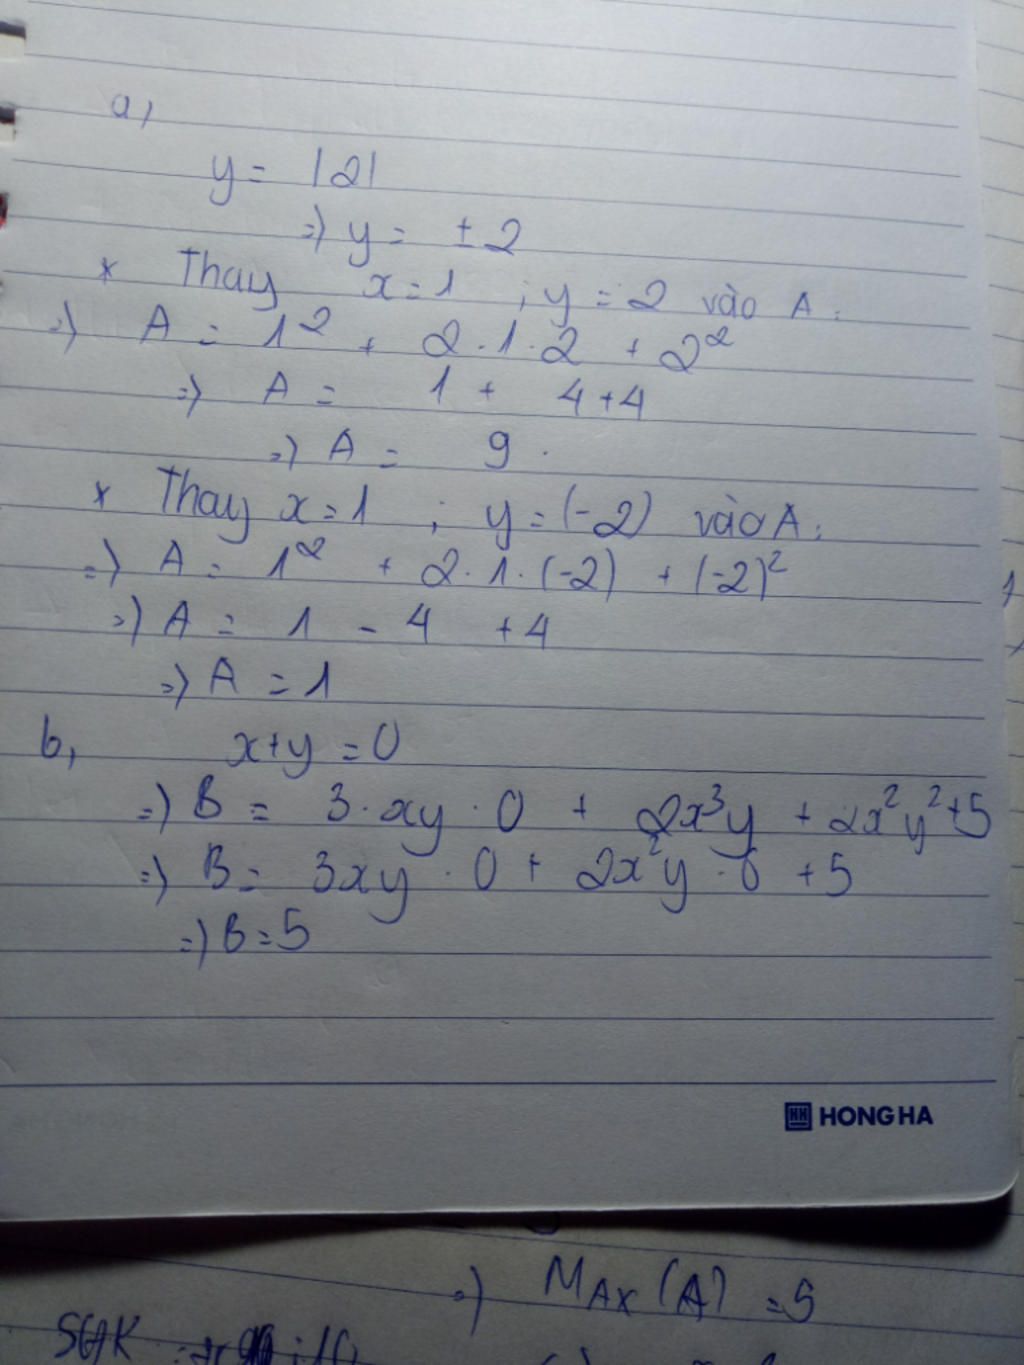 a,
y = |2|
=) y = ± 2
* Thay x = 1 ; y = 2 vào A:
=) A = 1² + 2.1.2 + 2²
=) A = 1 + 4+4
=) A = 9.
* Thay x = 1 ; y = (-2) vào A:
=) A = 1² + 2.1.(-2) + (-2)²
=) A = 1 - 4 + 4
=) A = 1
b, x+y = 0
=) B = 3.xy.0 + 2x³y + 2x²y²+5
=) B = 3xy.0 + 2x²y.0 + 5
=) B = 5
HH HONG HA
=) MAX (A) = 5
SGK